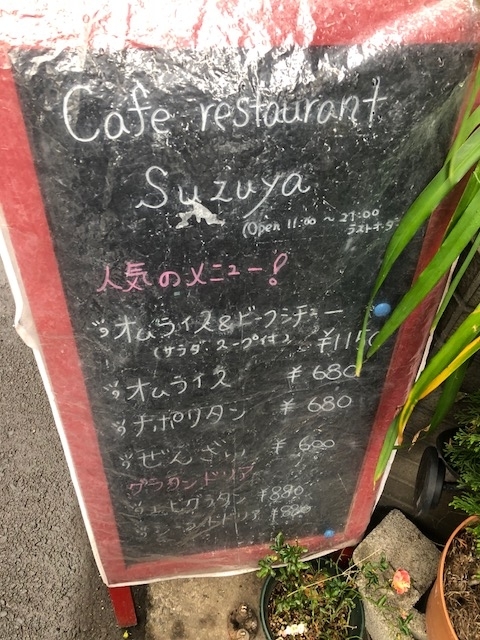 Cafe restaurant
Suzuya
(Open 11:00 ~ 21:00
ラストオーダー
人気のメニュー!
オムライス&ビーフシチュー
(サラダ・スープ付き)
オムライス ¥680
ナポリタン ¥680
ぜんざい ¥600
グラタンドリア
エビグラタン ¥880
シーフードドリア ¥880